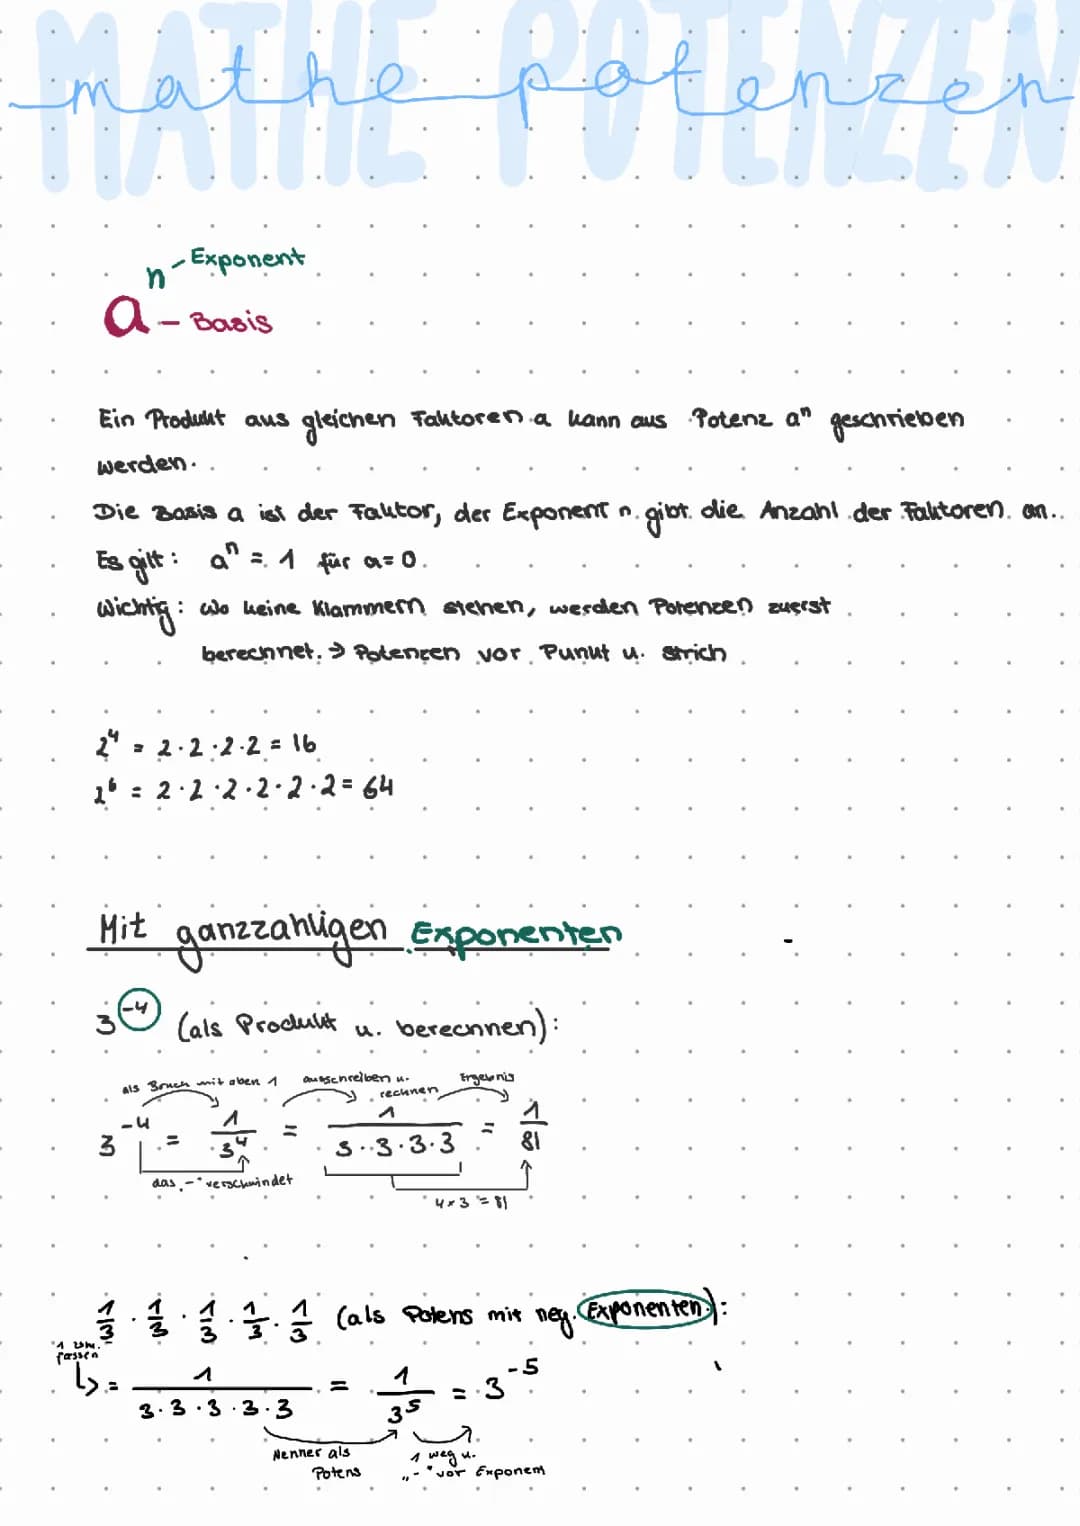 MATHE POTENZEN
mathe potenzen
n - Exponent
a - Basis
Ein Produkt aus gleichen Faktoren a kann aus Potenz aⁿ geschrieben
werden.
Die Basis a ist der Faktor, der Exponent n gibt die Anzahl der Faktoren an.
Es gilt: aⁿ = 1 für a = 0.
Wichtig: Wo keine Klammern stehen, werden Potenzen zuerst
berechnet. → Potenzen vor Punkt u. Strich
2⁴ = 2·2·2·2 = 16
2⁶ = 2·2·2·2·2·2 = 64
Mit ganzzahligen Exponenten
3⁻⁴ (als Produkt u. berechnen):
als Bruch mit oben 1 ausschreiben u. rechnen Ergebnis
3⁻⁴ = 1/3⁴ = 1/(3·3·3·3) = 1/81
das „-" verschwindet
4×3 = 81
1/3 · 1/3 · 1/3 · 1/3 · 1/3 (als Potens mit neg. Exponenten):
1 zsm. fassen
↳ = 1/(3·3·3·3·3) = 1/3⁵ = 3⁻⁵
Nenner als Potens
1 weg u. „-" vor Exponent